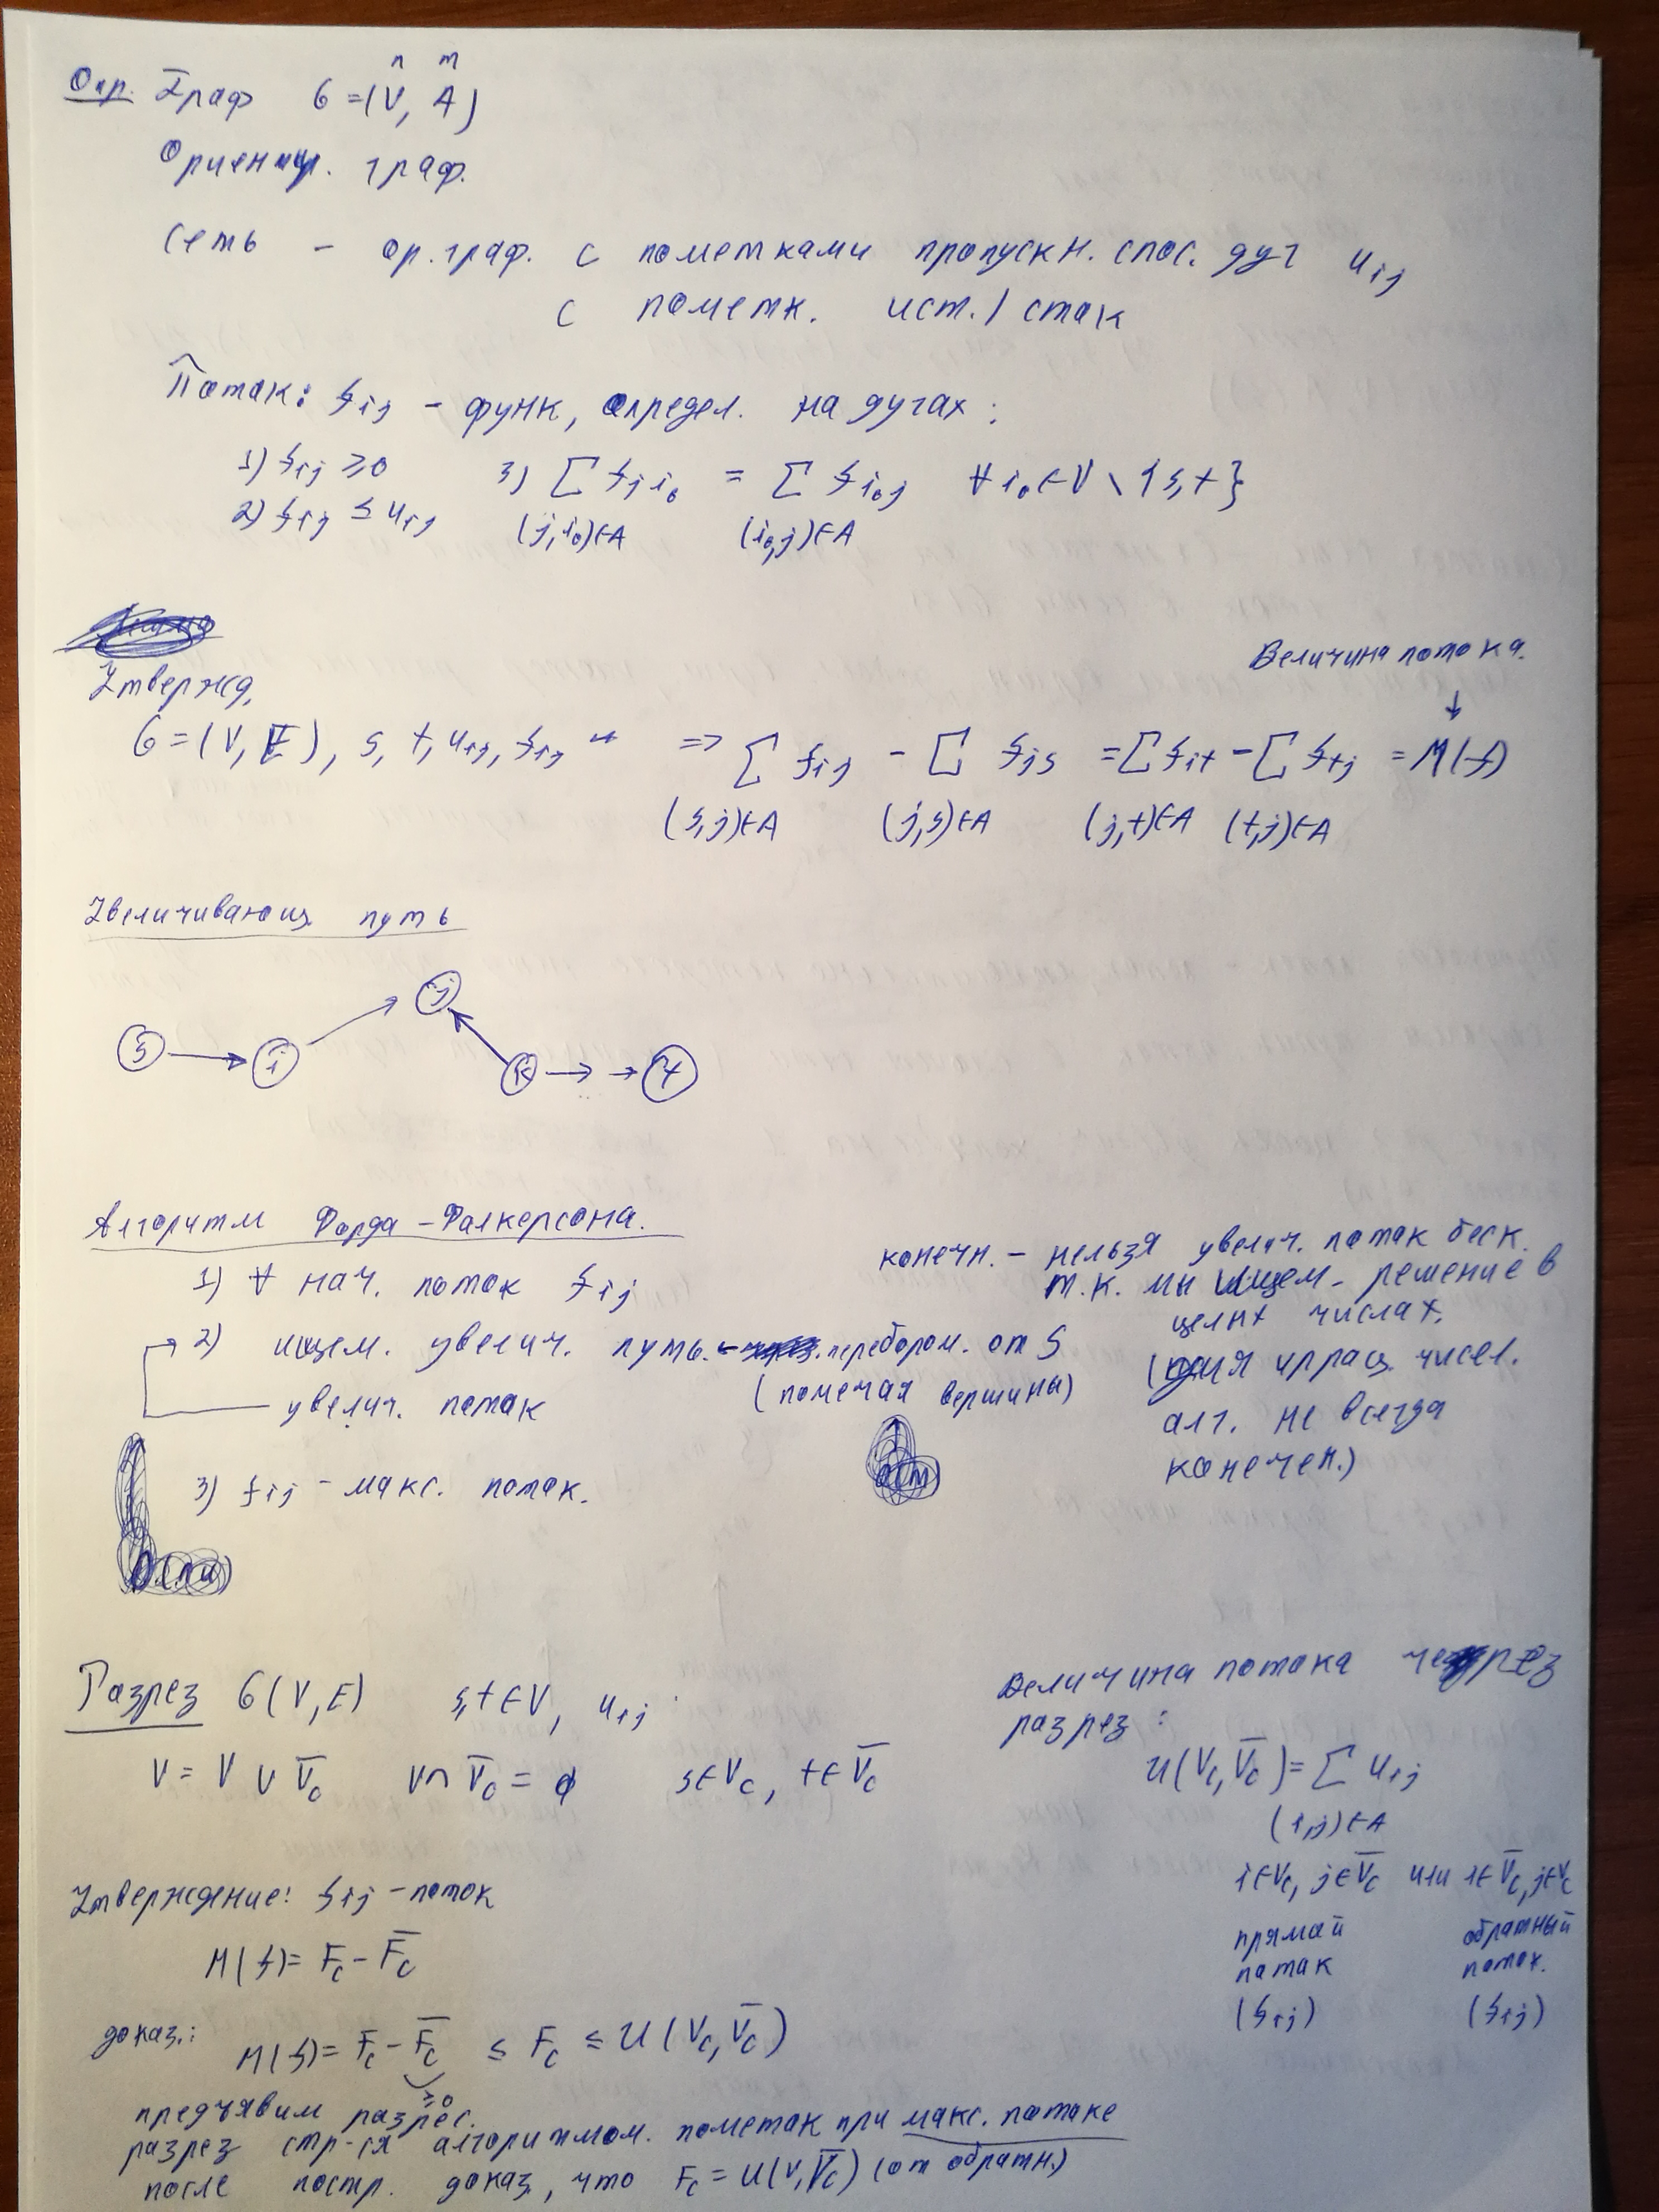 n m
Опр. Граф G=(V, A)
Ориентир. граф.
сеть – ор.граф. с пометками пропускн. спос. дуг u_ij
с пометк. ист./сток
Поток: f_ij – функ, определ. на дугах:
1) f_ij ≥0 3) ∑ f_ji₀ = ∑ f_i₀j ∀ i₀∈V \ {s,t}
2) f_ij ≤ u_ij (j,i₀)∈A (i₀,j)∈A
Величина потока.
↓
Утвержд.
G=(V,E), s, t, u_ij, f_ij => ∑ f_ij - ∑ f_js =∑f_it -∑ f_tj = M(f)
(s,j)∈A (j,s)∈A (j,t)∈A (t,j)∈A
Увеличивающ. путь
j
s i k t
Алгоритм Форда-Фалкерсона.
1) ∀ нач. поток f_ij
2) ищем. увелич. путь. – перебором. от S
(помечая вершины)
увелич. поток
3) f_ij – макс. поток.
конечн. – нельзя увелич. поток беск.
т.к. мы ищем решение в
целых числах.
(для иррац. чисел.
алг. не всегда
конечен.)
O(m)
O(nu)
Разрез G(V,E) s,t∈V, u_ij
V = V ∪ V̅c V∩ V̅c = ∅ s∈Vc, t∈ V̅c
Величина потока через
разрез:
u(Vc,V̅c)= ∑ u_ij
(i,j)∈A
i∈Vc, j∈V̅c или i∈V̅c, j∈Vc
прямой обратный
поток поток.
(f_ij) (f_ij)
Утверждение: f_ij – поток
M(f)= Fc - F̅c
доказ.: M(f)= Fc - F̅c ≤ Fc ≤ u(Vc,V̅c)
≥0
предъявим разрес.
разрез стр-ся алгоритмом. пометок при макс. потоке
после постр. доказ, что Fc = u(V,V̅c) (от обратн.)